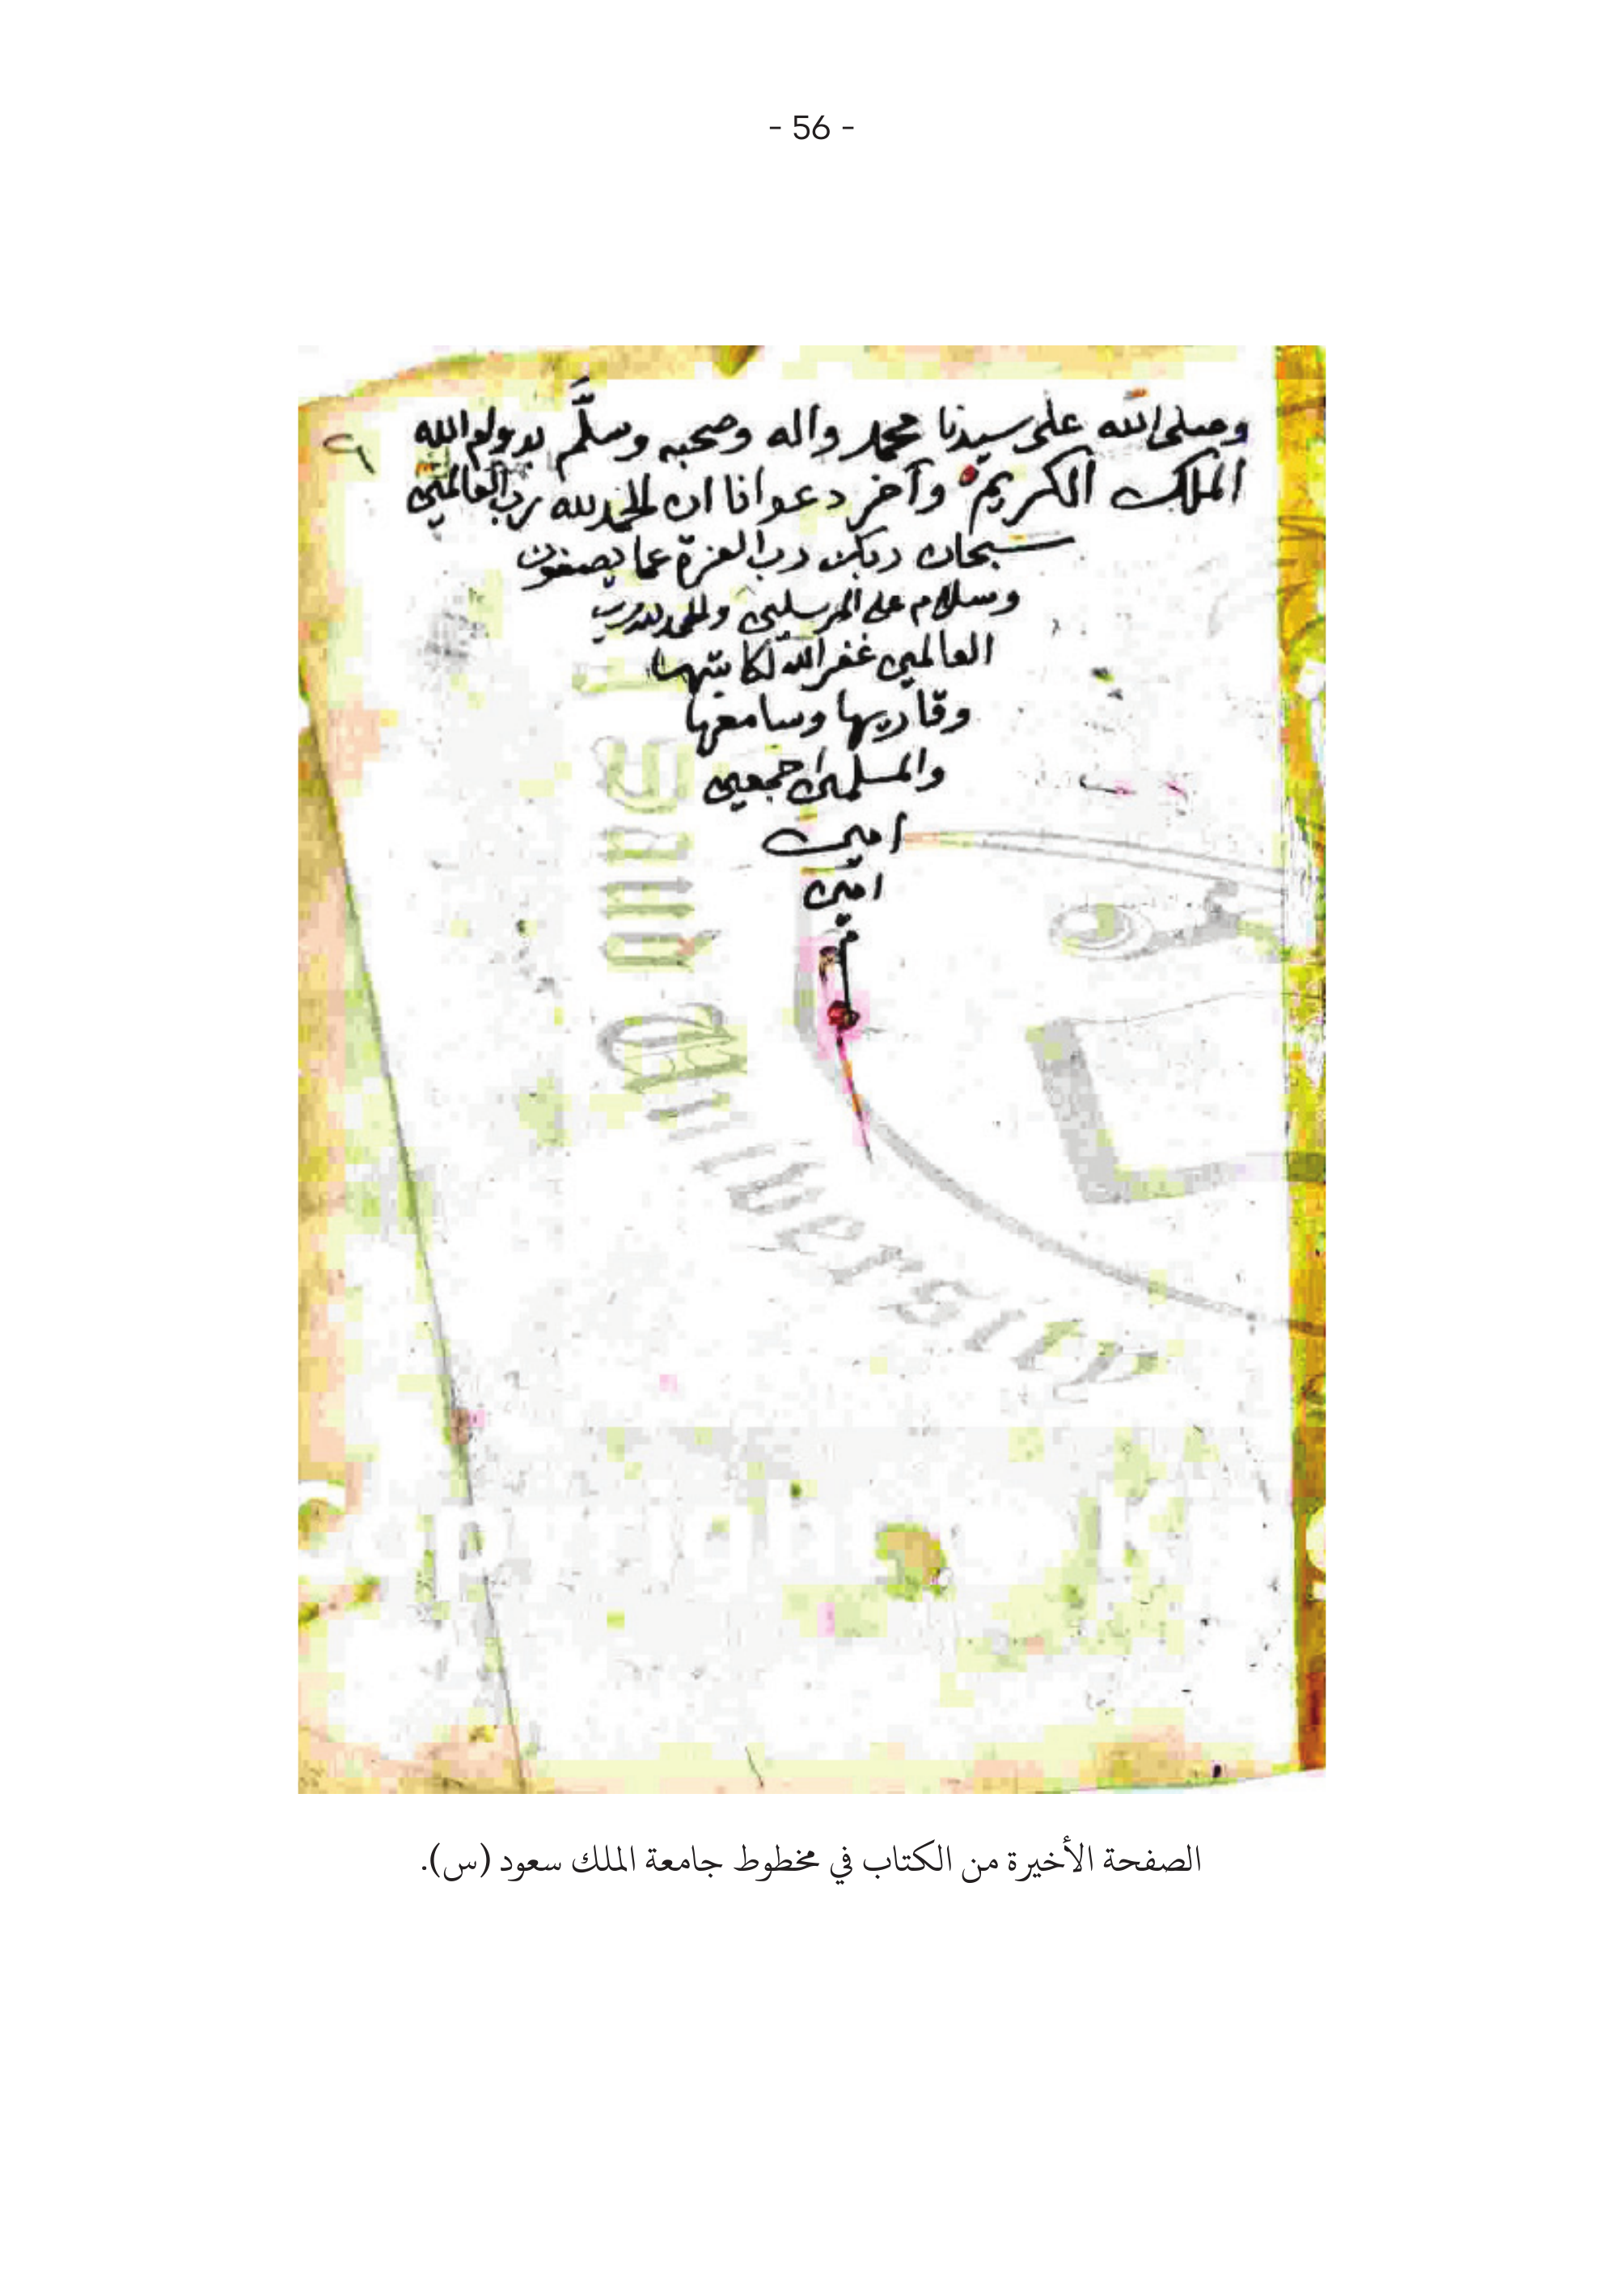 - 56 -
وصلى الله على سيدنا محمد واله وصحبه وسلم بدوام الله
الملك الكريم وآخر دعوانا ان الحمد لله رب العالمين
سبحان ربك رب العزة عما يصفون
وسلام على المرسلين والحمد لله رب
العالمين غفر الله لكاتبها
وقاريها وسامعها
والمسلمين اجمعين
امين
امين
م
University
الصفحة الأخيرة من الكتاب في مخطوط جامعة الملك سعود (س).